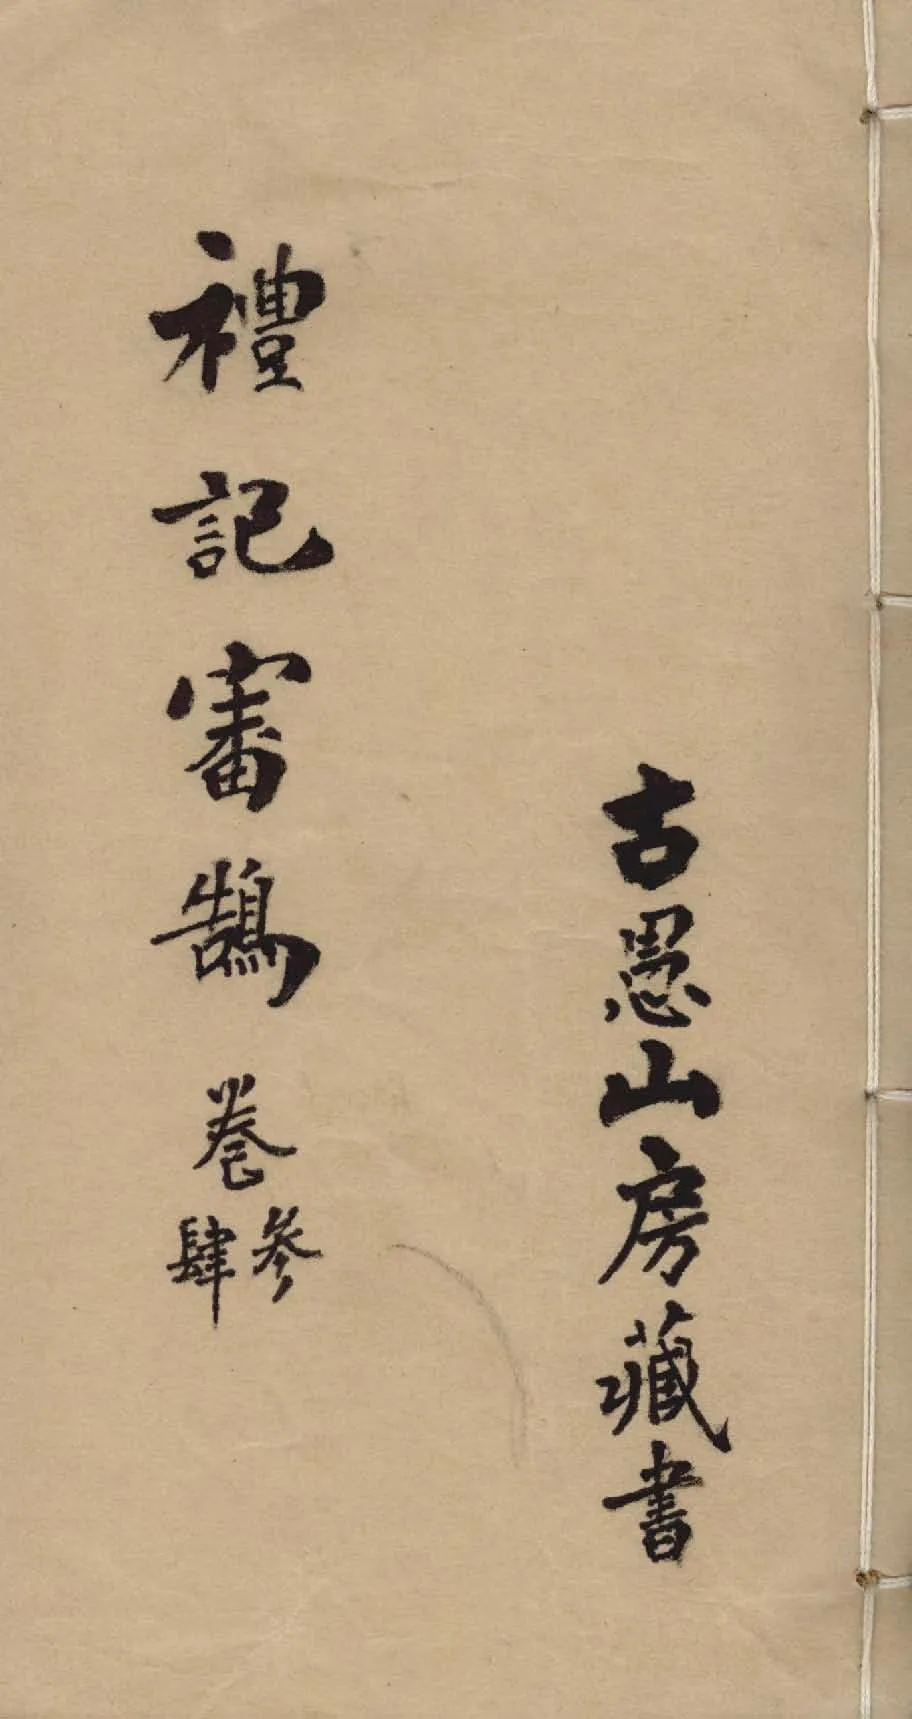 古愚山房藏書
禮記審鵠 卷參肆